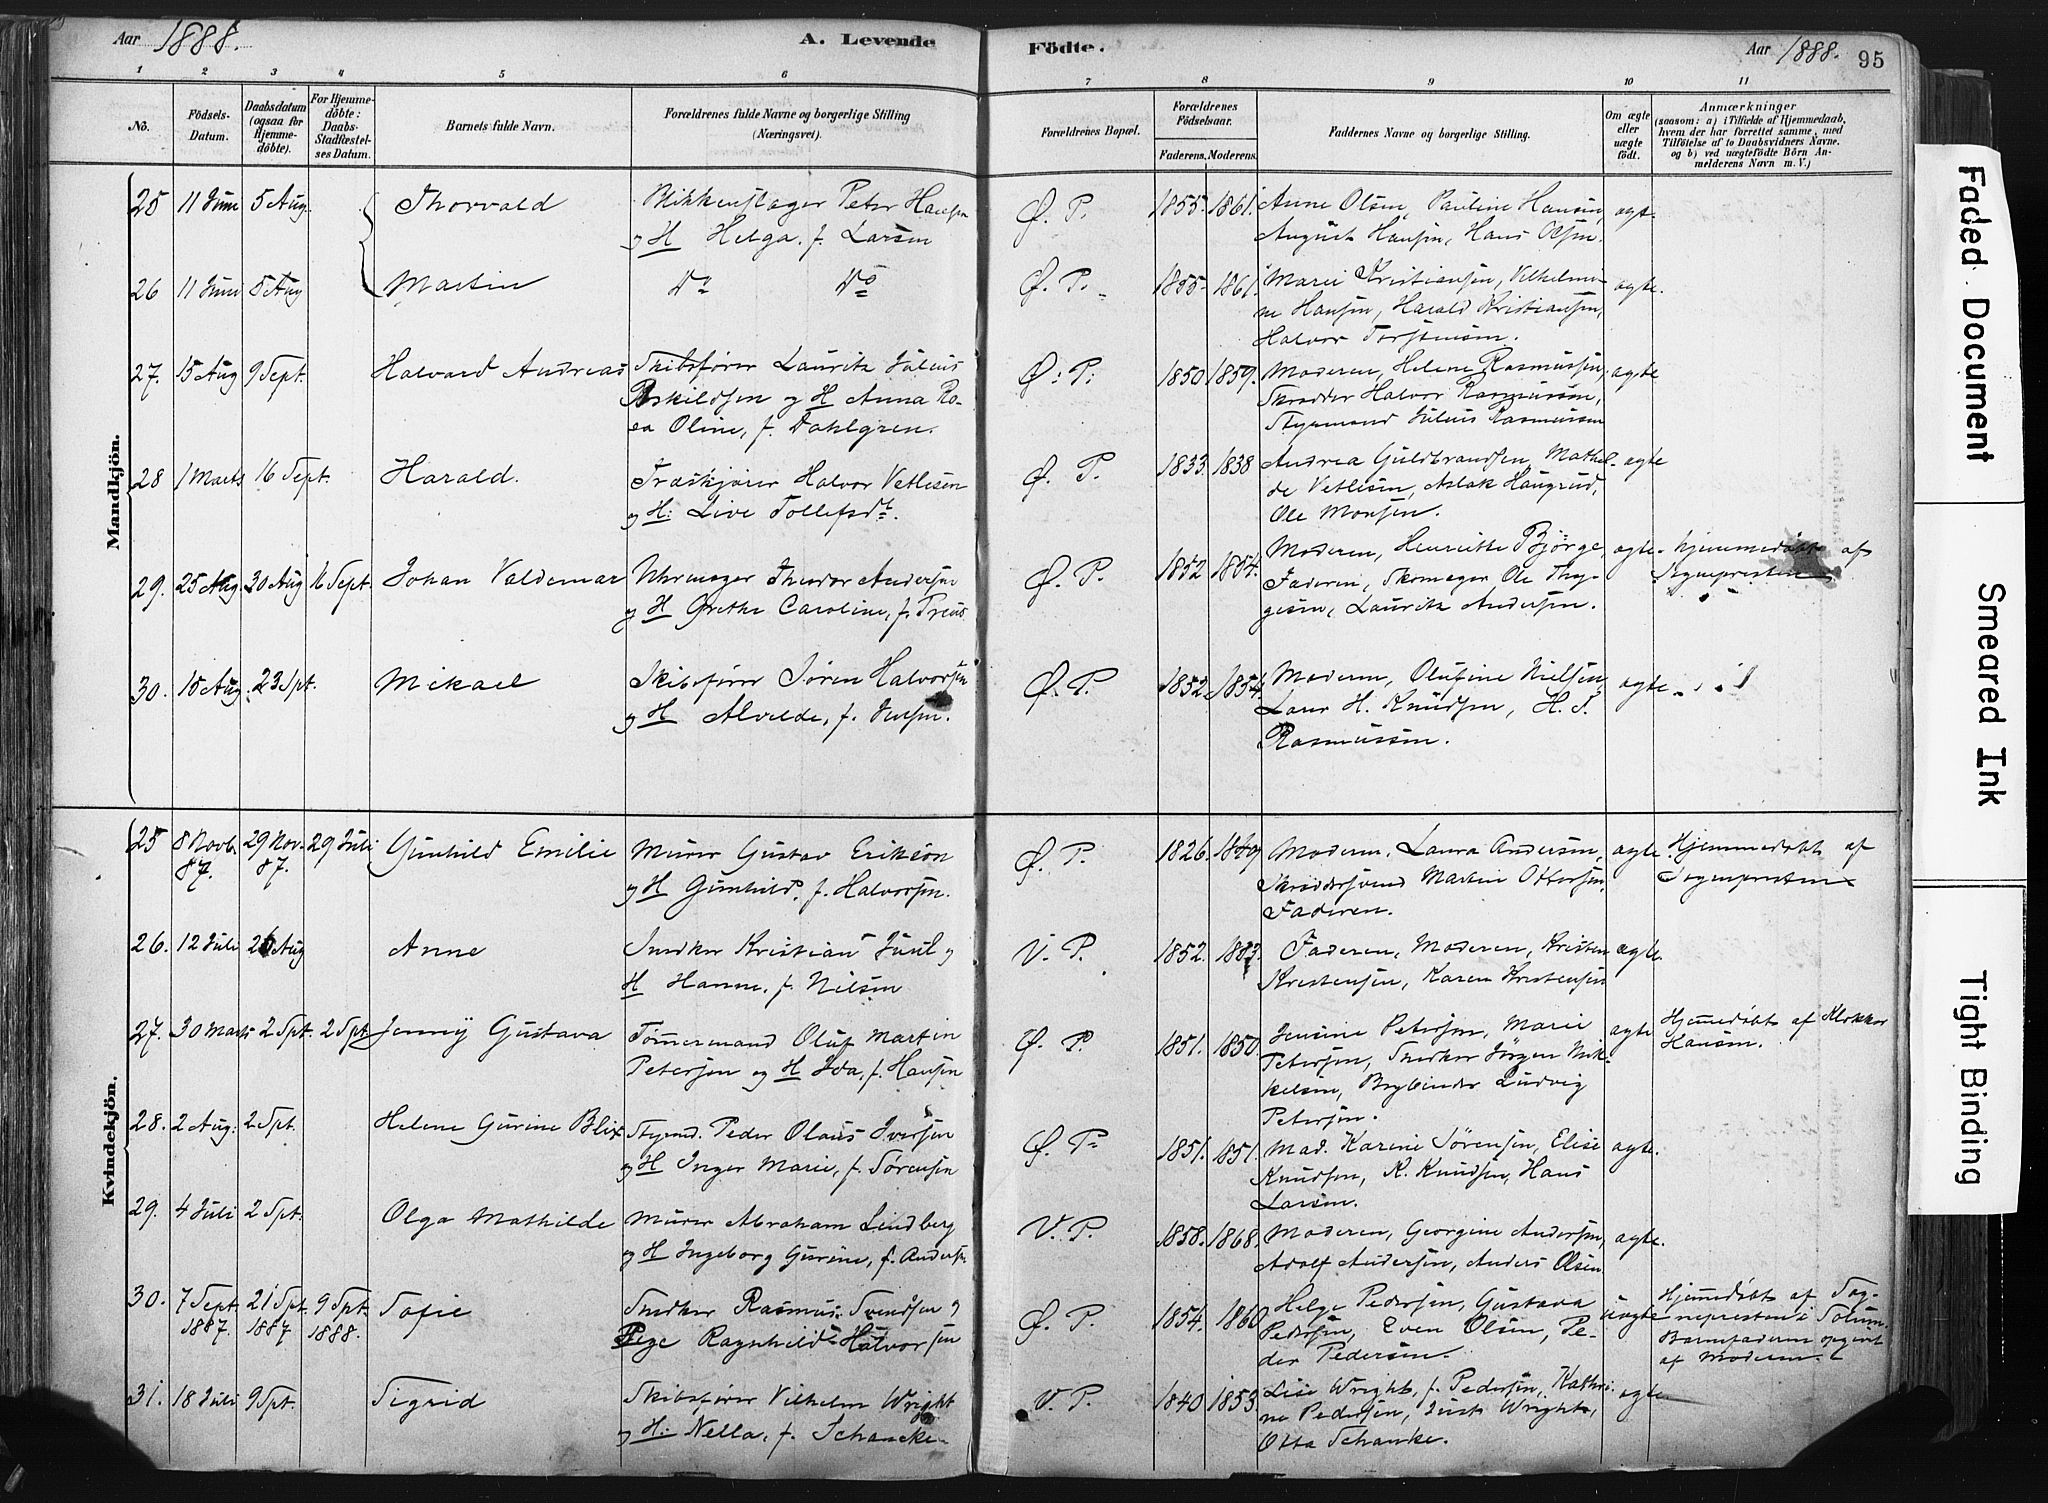 Aar 1888.
A. Levende
Födte.
Aar 1888.
95
1 2 3 4 5 6 7 8 9 10 11
No.
Födsels-
Datum.
Daabsdatum
(ogsaa for
Hjemme-
döbte).
For Hjemme-
döbte:
Daabs-
Stadfæstel-
ses Datum.
Barnets fulde Navn.
Forældrenes fulde Navne og borgerlige Stilling
(Næringsvei).
Forældrenes Bopæl.
Forældrenes
Födselsaar.
Faderens. Moderens.
Faddernes Navne og borgerlige Stilling.
Om ægte
eller
uægte
födt.
Anmærkninger
(saasom: a) i Tilfælde af Hjemmedaab,
hvem der har forrettet samme, med
Tilföielse af to Daabsvidners Navne.
og b) ved uægtefödte Börn An-
melderens Navn m. V.)
Mandkjön.
25 11 Juni 5 Aug. Thorvald
Blikkenslager Peter Hansen
og H Helga, f. Larsen
Ø. P. 1855. 1861.
Anne Olsen, Pauline Hansen,
August Hansen, Hans Olsen.
ægte.
26 11 Juni 5 Aug Martin
Do Do
Ø. P. 1855. 1861.
Marie Kristiansen, Vilhelmi-
ne Hansen, Harald Kristiansen,
Halvor Torstensen.
ægte.
27. 15 Aug 9 Sept. Halvard Andreas
Skibsfører Lauritz Julius
Askildsen og H Anna Ro-
sa Oline, f. Dahlgren.
Ø. P. 1850 1859.
Moderen, Helene Rasmussen,
Skrædder Halvor Rasmussen,
Styrmand Julius Rasmussen
ægte
28 1 Marts 16 Sept. Harald.
Træskjører Halvor Vetlesen
og H: Live Tollefsdt.
Ø. P. 1833. 1838
Andrea Guldbrandsen, Mathil-
de Vetlesen, Aslak Haugrud,
Ole Monsen.
ægte
29. 25 Aug. 30 Aug 16 Sept. Johan Valdemar
Uhrmager Theodor Andersen
og H Grethe Caroline, f. Preus
Ø. P. 1852 1854.
Moderen, Henriette Bjørge
Faderen, Skomager Ole Thy-
gesen, Lauritz Andersen.
ægte. Hjemmedøbt af
Sognepresten
30. 15 Aug. 23 Spt. Mikael
Skibsfører Søren Halvorsen
og H Alvilde, f. Jensen.
Ø. P. 1852. 1854.
Moderen, Olufine Nielsen,
Laur H. Knudsen, H. S.
Rasmussen.
ægte
Kvindekjön.
25 8 Novb. 87. 29 Nov. 87. 29 Juli Gunhild Emilie
Murer Gustav Erikson
og H Gunhild, f. Halvorsen.
Ø. P. 1826. 1849
Moderen, Laura Andersen,
Skræddersvend Martin Ottersen,
Faderen.
ægte. Hjemmedøbt af
Sognepresten
26. 12 Juli 26 Aug Anne
Snedker Kristian Juul og
H Hanne, f. Nilsen
V. P. 1852. 1853.
Faderen, Moderen, Kristen
Kristensen, Karen Kristensen
ægte.
27. 30 Marts 2 Spt. 2 Spt. Jenny Gustava
Tømmermand Oluf Martin
Petersen og H Ida, f. Hansen
Ø. P. 1851. 1850.
Jensine Petersen, Marie
Petersen, Snedker Jörgen Mik-
kelsen, Bogbinder Ludvig
Petersen.
ægte Hjemmedøbt af Klokker
Hansen.
28. 2 Aug. 2 Spt. Helene Gurine Blix
Styrmd. Peder Olaus Iversen
og H Inger Marie, f. Sørensen
Ø. P. 1851. 1851.
Mad. Karine Sørensen, Elise
Knudsen, K. Knudsen, Hans
Larsen.
ægte.
29. 4 Juli 2 Spt. Olga Mathilde
Murer Abraham Lindberg
og H Ingeborg Gurine, f. Andersen
V. P. 1858. 1868.
Moderen, Georgine Andersen,
Adolf Andersen, Anders Olsen
ægte.
30. 7 Sept. 1887. 21 Spt. 1887 9 Spt. 1888. Sofie
Snedker Rasmus Svendsen og
Pige Ragnhild Halvorsen
Ø. P. 1854. 1860
Helge Pedersen, Gustava
Pedersen, Even Olsen, Pe-
der Pedersen.
uægte Hjemmedøbt af Sog-
nepresten i Solum.
Barnefaderen opgivet
af Moderen.
31. 18 Juli 9 Spt. Sigrid
Skibsfører Vilhelm Wright
og H: Nella, f. Schancke
V. P. 1840 1853.
Lise Wright, f. Pedersen, Kathri-
ne Pedersen, Just Wright,
Otto Schanke.
ægte
Faded Document
Smeared Ink
Tight Binding